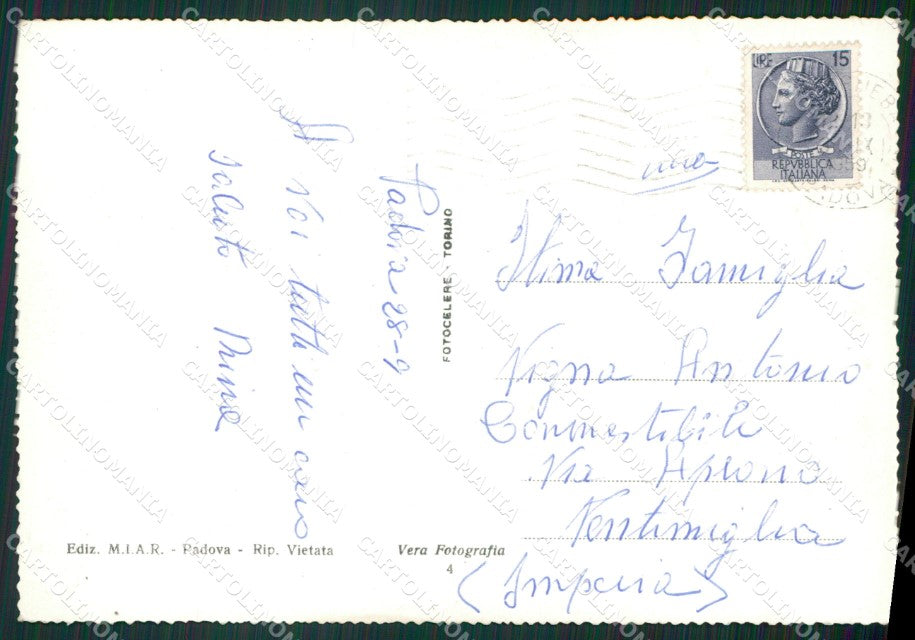 Padova 28-9
A voi tutti un caro
saluto Nina
FOTOCELERE - TORINO
LIRE 15
POSTE
REPVBBLICA
ITALIANA
Ill.ma Famiglia
Vigna Antonio
Commestibili
Via Aprosio
Ventimiglia
(Imperia)
Ediz. M.I.A.R. - Padova - Rip. Vietata
Vera Fotografia
4
CARTOLINOMANIA